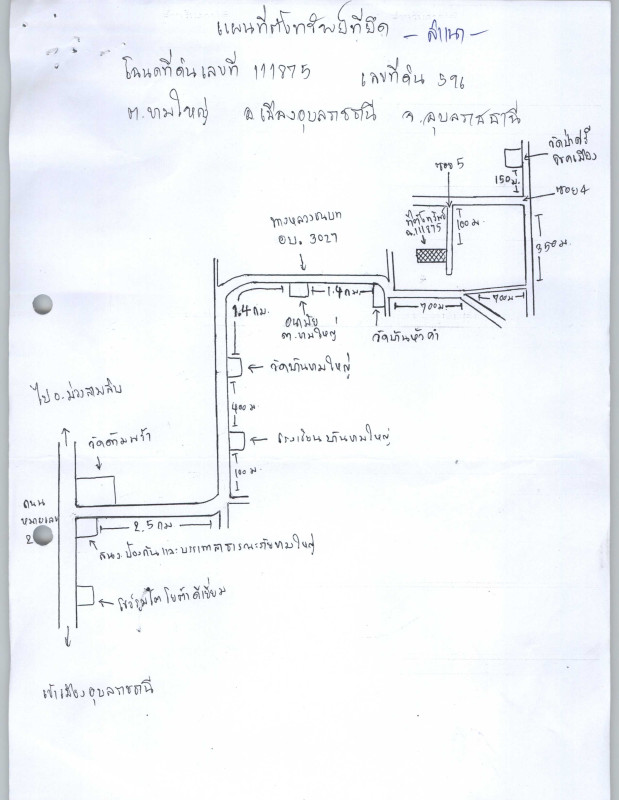 แผนที่ตั้งทรัพย์ที่ยึด - สำเนา -
โฉนดที่ดินเลขที่ 111875 เลขที่ดิน 596
ต.ขามใหญ่ อ.เมืองอุบลราชธานี จ.อุบลราชธานี
วัดป่าศรี
ซอย 5
150ม.
ซอย 4
ทางหลวงชนบท
อบ. 3027
ที่ตั้งทรัพย์
ฉ.111875
100 ม.
350ม.
1.4 กม.
1.4 กม.
700ม
700ม
อนามัย
ต.ขามใหญ่
วัดบ้านหัวคำ
วัดบ้านขามใหญ่
ไป อ.ม่วงสามสิบ
400 ม.
โรงเรียนบ้านขามใหญ่
วัดถ้ำมพร้า
100 ม.
ถนน
หมายเลข
2
2.5 กม
สนง.ป้องกันและบรรเทาสาธารณะภัยขามใหญ่
โชว์รูมโตโยต้าดีเยี่ยม
เข้าเมืองอุบลราชธานี